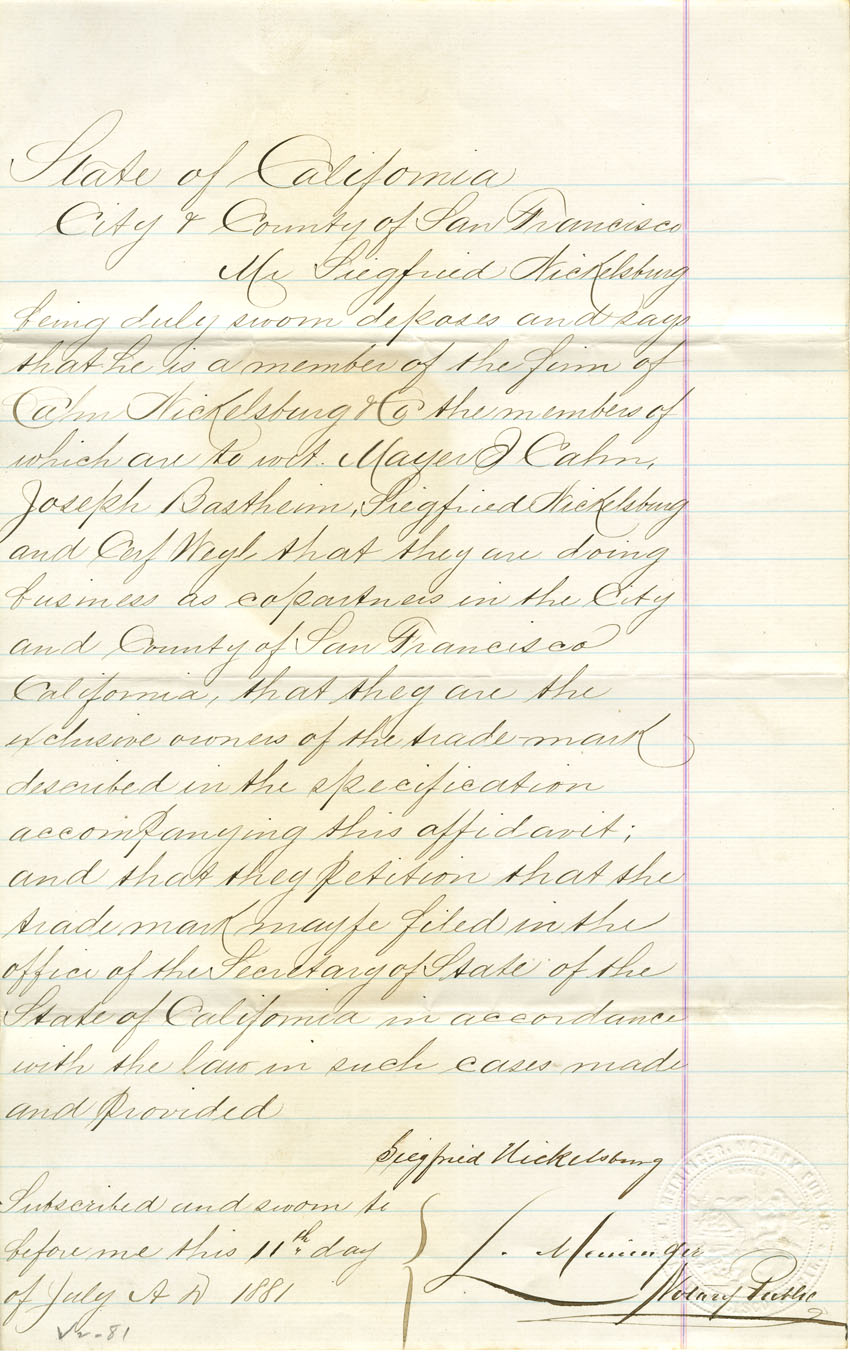 State of California
City & County of San Francisco
Mr Siegfried Nickelsburg
being duly sworn deposes and says
that he is a member of the firm of
Cahn Nickelsburg & Co the members of
which are to wit. Mayer J Cahn,
Joseph Bastheim, Siegfried Nickelsburg
and Cerf Weyl that they are doing
business as copartners in the City
and County of San Francisco
California, that they are the
exclusive owners of the trade-mark
described in the specification
accompanying this affidavit;
and that they petition that the
trade mark may be filed in the
office of the Secretary of State of the
State of California in accordance
with the law in such cases made
and provided
Siegfried Nickelsburg
Subscribed and sworn to
before me this 11th day
of July A D 1881
L.
Notary Public
NOTARY PUBLIC